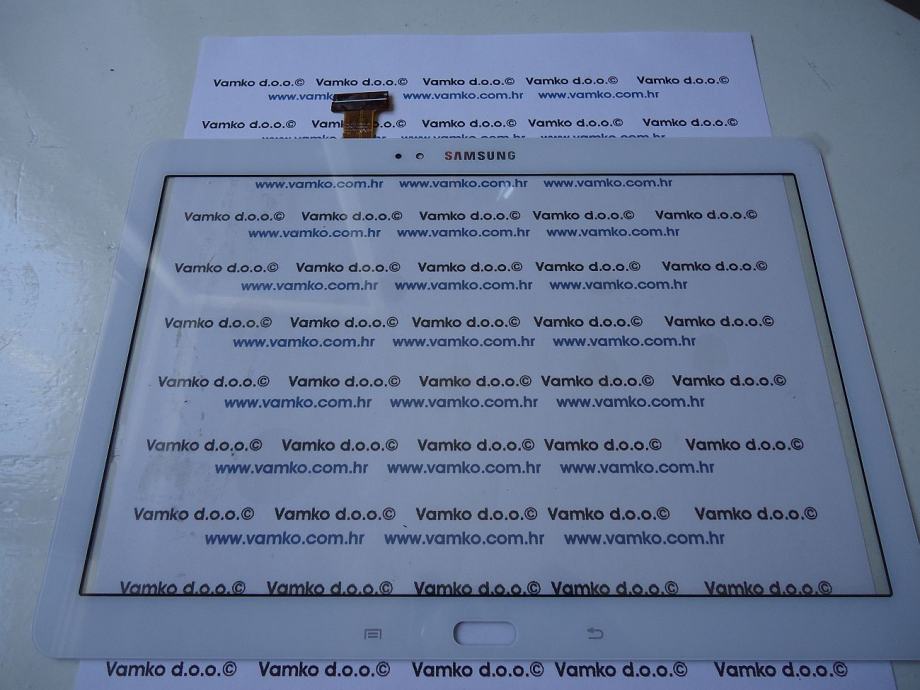 Vamko d.o.o.© Vamko d.o.o.© Vamko d.o.o.© Vamko d.o.o.© Vamko d.o.o.©
www.vamko.com.hr www.vamko.com.hr www.vamko.com.hr
Vamko d.o.o.© Vamko d.o.o.© Vamko d.o.o.© Vamko d.o.o.© Vamko d.o.o.©
www.vamko.com.hr www.vamko.com.hr www.vamko.com.hr
SAMSUNG
www.vamko.com.hr www.vamko.com.hr www.vamko.com.hr
Vamko d.o.o.© Vamko d.o.o.© Vamko d.o.o.© Vamko d.o.o.© Vamko d.o.o.©
www.vamko.com.hr www.vamko.com.hr www.vamko.com.hr
Vamko d.o.o.© Vamko d.o.o.© Vamko d.o.o.© Vamko d.o.o.© Vamko d.o.o.©
www.vamko.com.hr www.vamko.com.hr www.vamko.com.hr
Vamko d.o.o.© Vamko d.o.o.© Vamko d.o.o.© Vamko d.o.o.© Vamko d.o.o.©
www.vamko.com.hr www.vamko.com.hr www.vamko.com.hr
Vamko d.o.o.© Vamko d.o.o.© Vamko d.o.o.© Vamko d.o.o.© Vamko d.o.o.©
www.vamko.com.hr www.vamko.com.hr www.vamko.com.hr
Vamko d.o.o.© Vamko d.o.o.© Vamko d.o.o.© Vamko d.o.o.© Vamko d.o.o.©
www.vamko.com.hr www.vamko.com.hr www.vamko.com.hr
Vamko d.o.o.© Vamko d.o.o.© Vamko d.o.o.© Vamko d.o.o.© Vamko d.o.o.©
www.vamko.com.hr www.vamko.com.hr www.vamko.com.hr
Vamko d.o.o.© Vamko d.o.o.© Vamko d.o.o.© Vamko d.o.o.© Vamko d.o.o.©
Vamko d.o.o.© Vamko d.o.o.© Vamko d.o.o.© Vamko d.o.o.© Vamko d.o.o.©